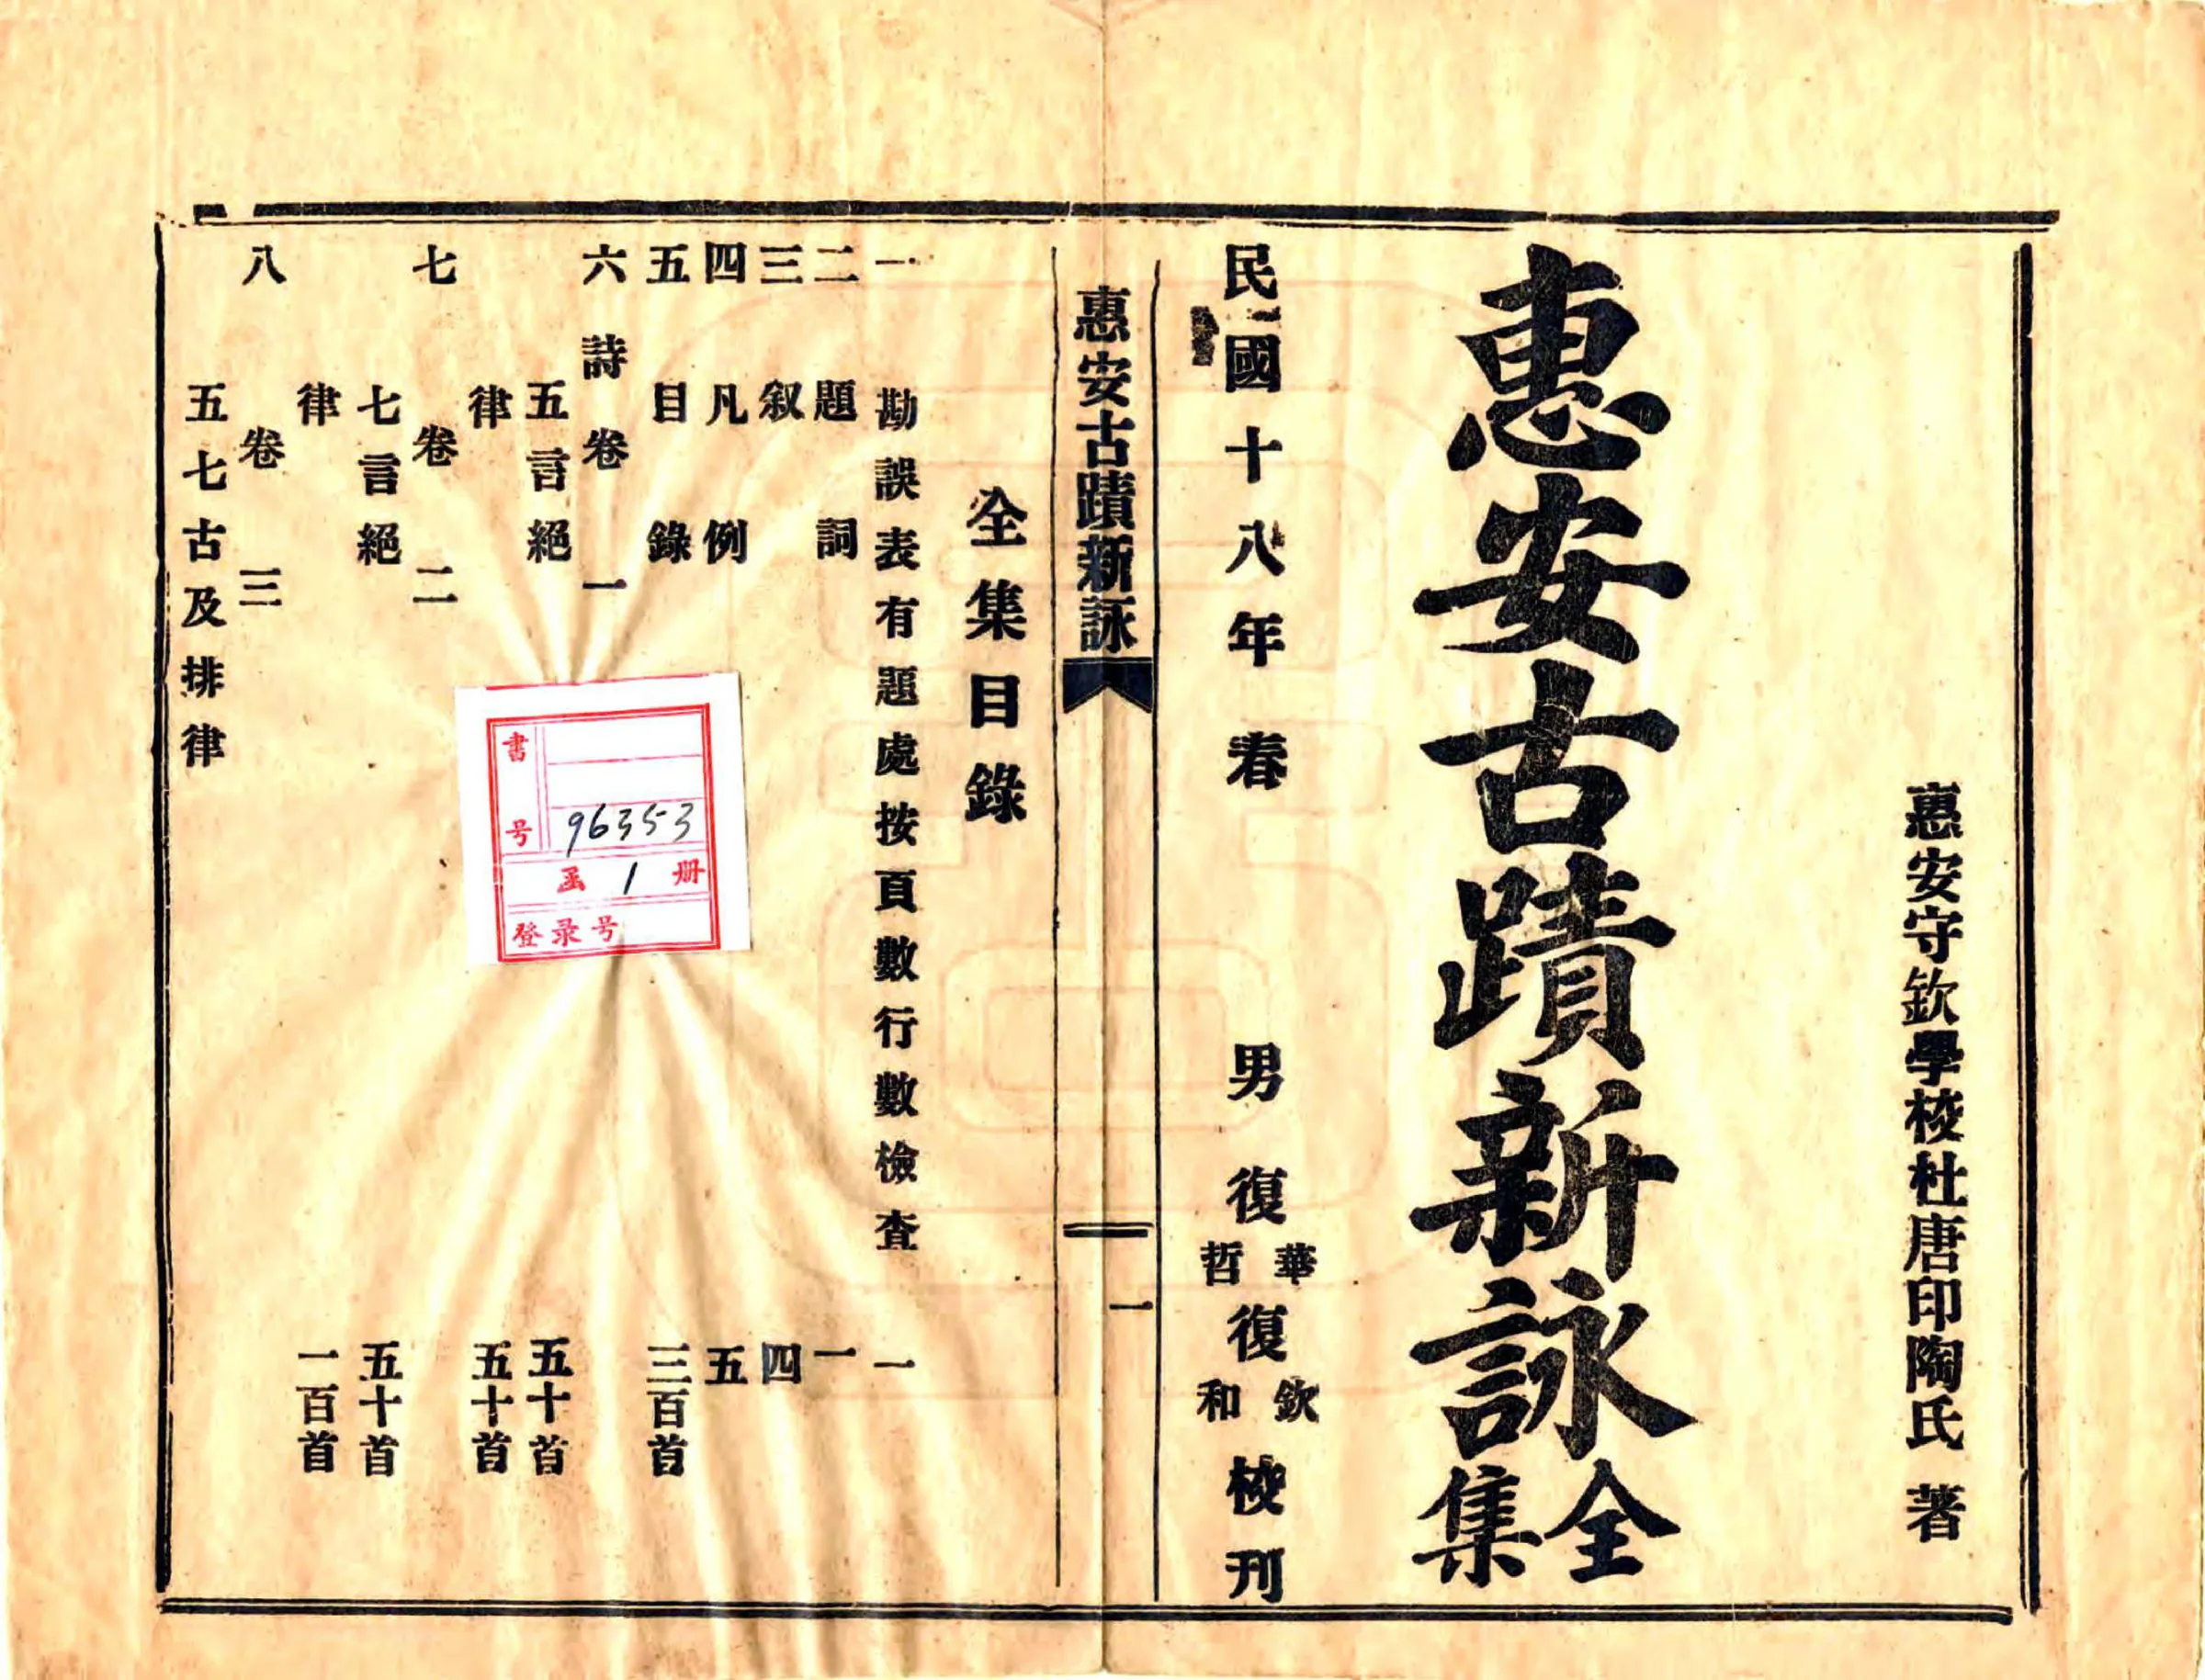 惠安守欽學校杜唐印陶氏 著
惠安古蹟新詠全集
民國十八年春 男 復華哲 復欽和 校刊
惠安古蹟新詠 一
全集目錄
一 勘誤表有題處按頁數行數檢查 一
二 題詞 一
三 叙 四
四 凡例 五
五 目錄 三百首
六 詩卷一
五言絕 五十首
律 五十首
七 卷二
七言絕 五十首
律 一百首
八 卷三
五七古及排律
書号 96353
函 1 册
登录号